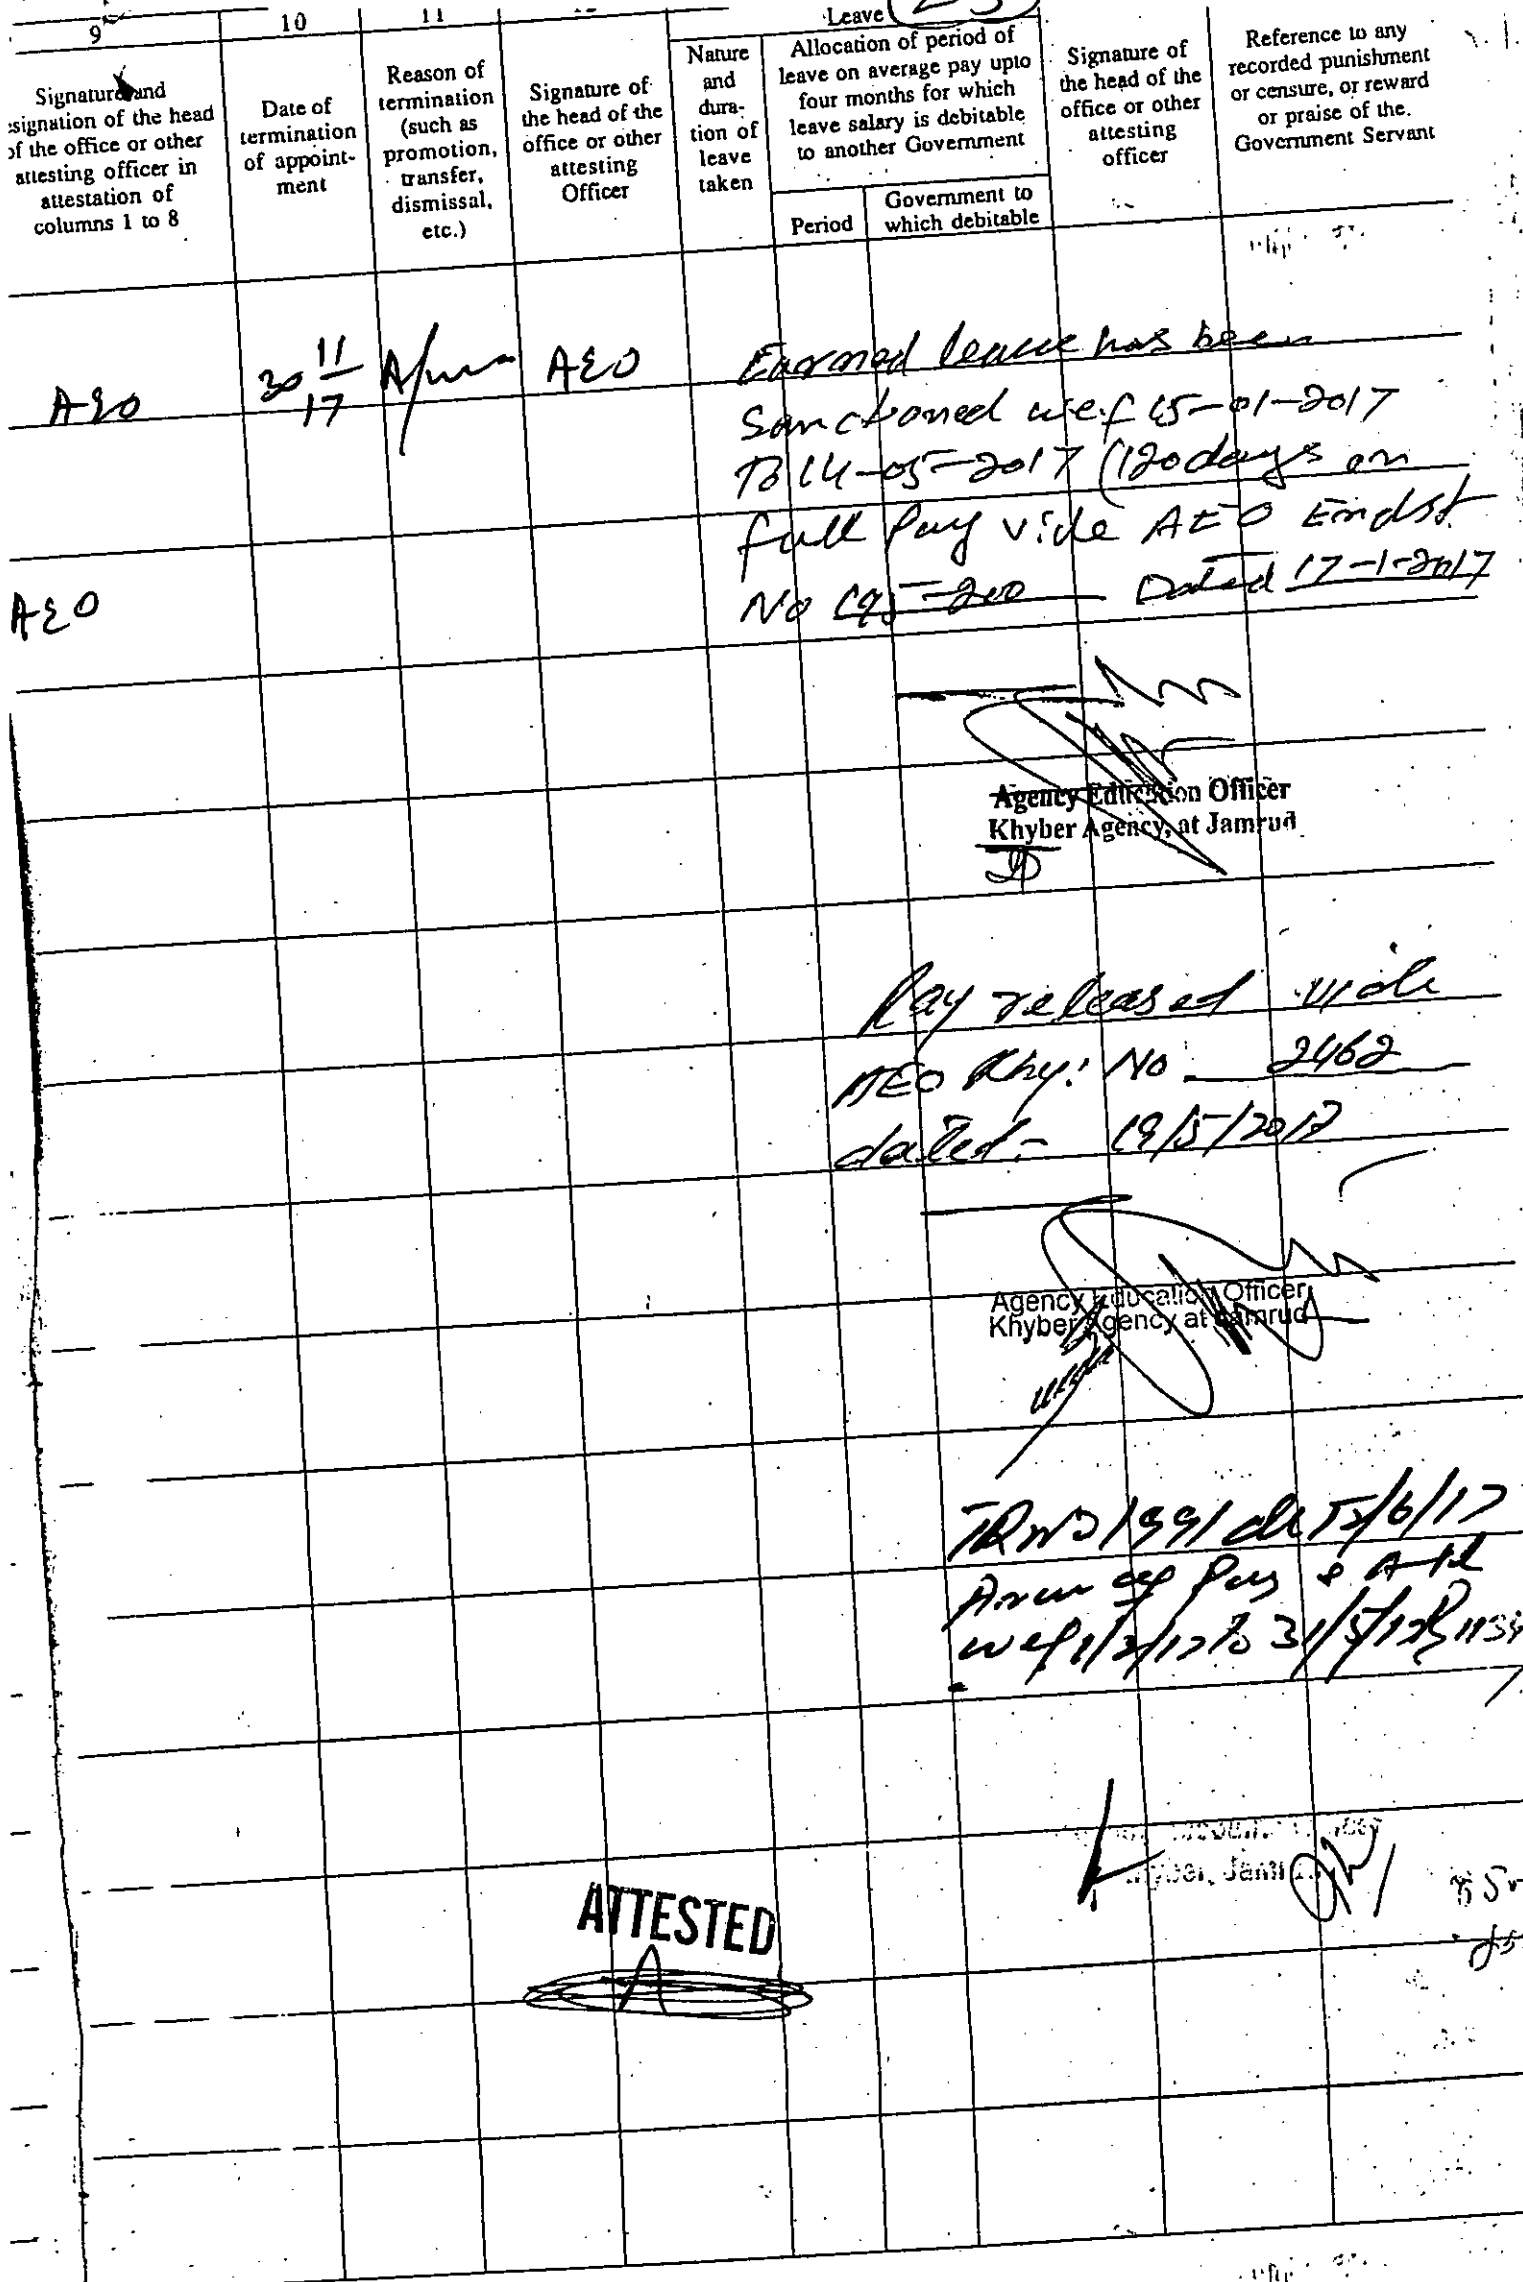 9
10
11
Leave
Signature and
esignation of the head
of the office or other
attesting officer in
attestation of
columns 1 to 8
Date of
termination
of appoint-
ment
Reason of
termination
(such as
promotion,
transfer,
dismissal,
etc.)
Signature of
the head of the
office or other
attesting
Officer
Nature
and
dura-
tion of
leave
taken
Allocation of period of
leave on average pay upto
four months for which
leave salary is debitable
to another Government
Period
Government to
which debitable
Signature of
the head of the
office or other
attesting
officer
Reference to any
recorded punishment
or censure, or reward
or praise of the.
Government Servant
AEO
30 11/17
AEO
Earned leave has been
Sanctioned w.e.f 15-01-2017
To 14-05-2017 (120 days on
full Pay vide AEO Endst
No 195-200 Dated 17-1-2017
AEO
Agency Education Officer
Khyber Agency, at Jamrud
Pay released vide
AEO Khy: No 2462
dated:- 19/5/2017
Agency Education Officer
Khyber Agency at Jamrud
TR No 1991 dt 15/6/17
Pay &
wef 1/2/17 to 31/5/17
ATTESTED